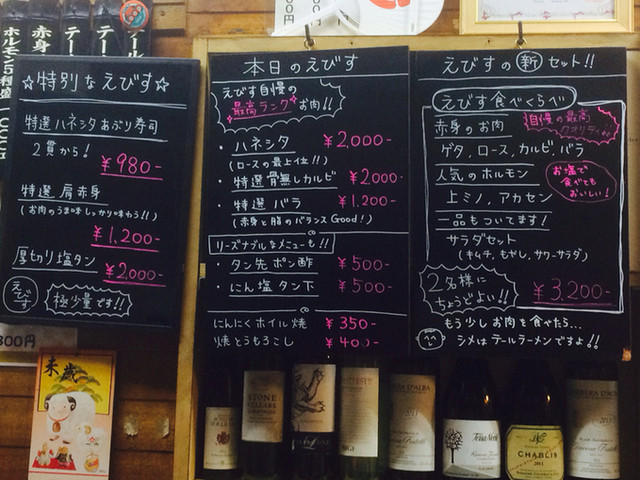 ホルモン5種盛
赤身
テー
テール
☆特別なえびす☆
特選ハネシタあぶり寿司
2貫から!
¥980-
特選 肩赤身
(お肉のうま味しっかり味もう!!)
¥1,200-
厚切り塩タン
¥2,000-
えびす
極少量です!!
本日のえびす
えびす自慢の
最高ランクお肉!!
・ハネシタ ¥2,000-
(ロースの最上位!!)
・特選骨無しカルビ ¥2,000-
・特選バラ ¥1,200-
(赤身と脂のバランスGood!)
リーズナブルなメニューも!!
・タン先ポン酢 ¥500-
・にん塩タン下 ¥500-
にんにくホイル焼 ¥350-
焼とうもろこし ¥400-
えびすの新セット!!
えびす食べくらべ
赤身のお肉
自慢の最高
クオリティ
ゲタ,ロース,カルビ,バラ
人気のホルモン
お塩で
食べても
おいしい!
上ミノ,アカセン
一品もついてます!
サラダセット
(キムチ,もやし,サワーサラダ)
2名様に
ちょうどよい!!
¥3,200-
もう少しお肉を食べたら...
シメはテールラーメンですよ!!
300円
未歳
STONE
CELLARS
D'ALBA
2013
CHABLIS
2011